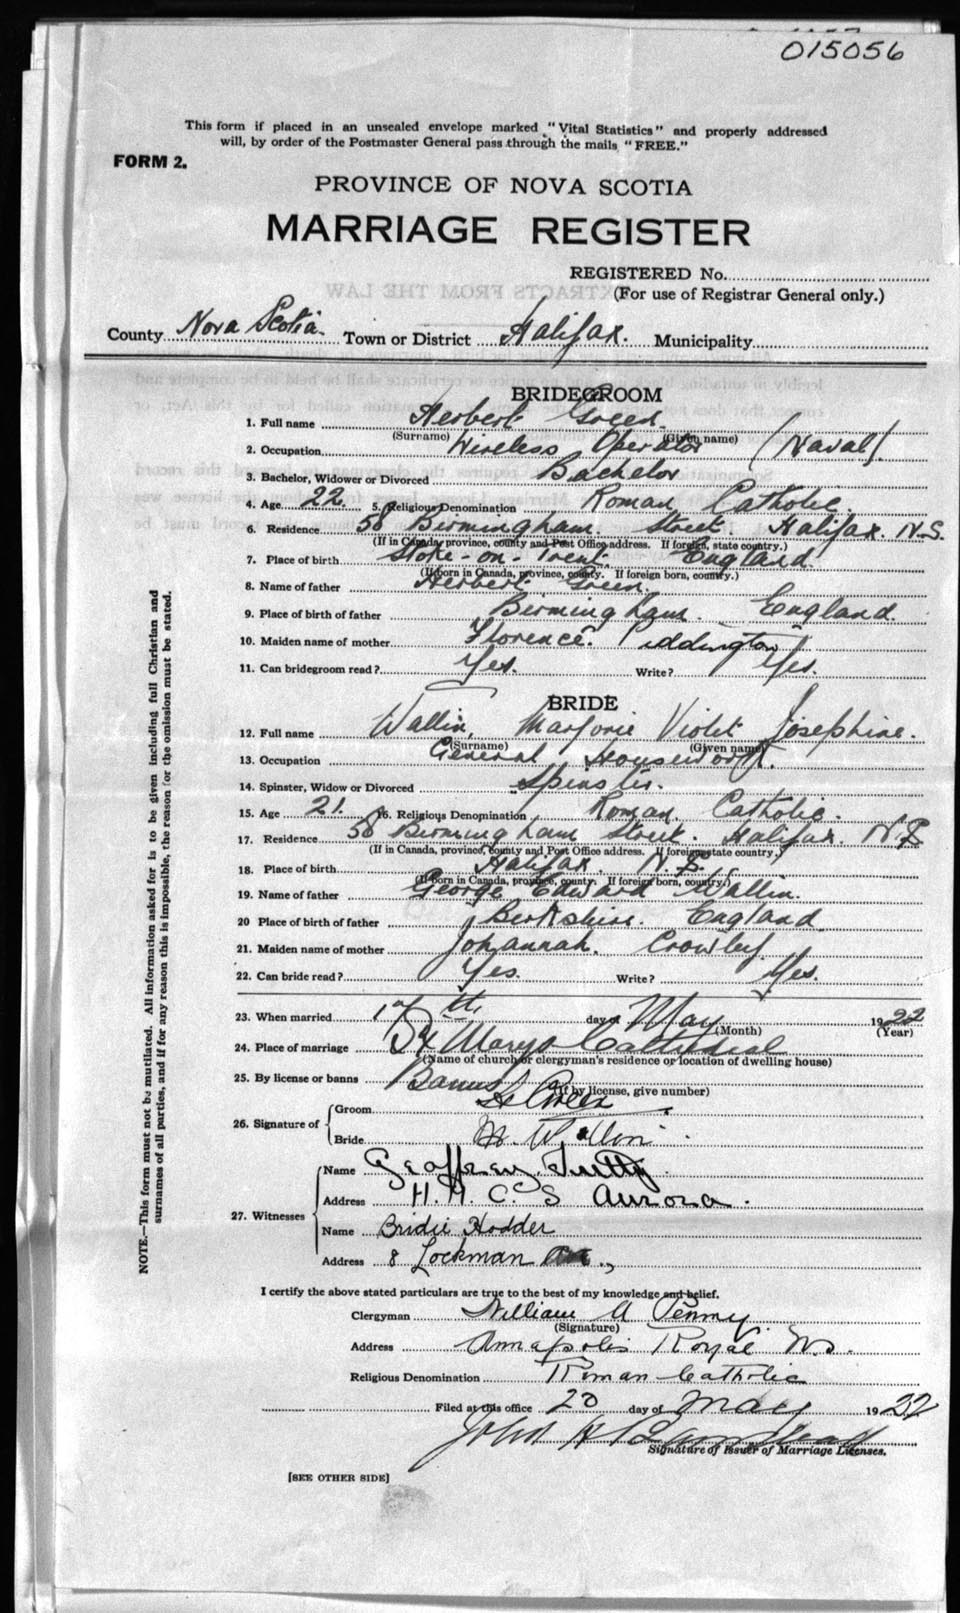 015056
This form if placed in an unsealed envelope marked "Vital Statistics" and properly addressed
will, by order of the Postmaster General pass through the mails "FREE."
FORM 2.
PROVINCE OF NOVA SCOTIA
MARRIAGE REGISTER
REGISTERED No.
(For use of Registrar General only.)
County Nova Scotia. Town or District Halifax. Municipality
BRIDEGROOM
1. Full name Herbert Green.
(Surname) (Given name)
2. Occupation Wireless Operator (Naval).
3. Bachelor, Widower or Divorced Bachelor
4. Age 22. 5. Religious Denomination Roman Catholic.
6. Residence 58 Birmingham Street. Halifax. N.S.
(If in Canada, province, county and Post Office address. If foreign, state country.)
7. Place of birth Stoke-on-Trent. England.
(If born in Canada, province, county. If foreign born, country.)
8. Name of father Herbert Green.
9. Place of birth of father Birmingham. England.
10. Maiden name of mother Florence. Piddington
11. Can bridegroom read? Yes. Write? Yes.
BRIDE
12. Full name Wallin, Marjorie Violet Josephine.
(Surname) (Given name)
13. Occupation General Housework.
14. Spinster, Widow or Divorced Spinster.
15. Age 21. 16. Religious Denomination Roman Catholic.
17. Residence 58 Birmingham Street. Halifax. N.S.
(If in Canada, province, county and Post Office address. If foreign state country.)
18. Place of birth Halifax. N.S.
(If born in Canada, province, county. If foreign born, country.)
19. Name of father George Edward Wallin.
20 Place of birth of father Berkshire. England.
21. Maiden name of mother Johannah. Crowley.
22. Can bride read? Yes. Write? Yes.
23. When married 17th day of May 1922
(Month) (Year)
24. Place of marriage St Marys Cathedral
(Name of church or clergyman's residence or location of dwelling house)
25. By license or banns Banns
(If by license, give number)
26. Signature of
Groom H Green
Bride M. Wallin
27. Witnesses
Name Geoffrey
Address H. M. C. S Aurora.
Name Bridie Hodder
Address 8 Lockman
I certify the above stated particulars are true to the best of my knowledge and belief.
Clergyman William A Penny.
(Signature)
Address Annapolis Royal N.S.
Religious Denomination Roman Catholic
Filed at this office 20 day of May 1922
John H
Signature of Issuer of Marriage Licenses.
[SEE OTHER SIDE]
NOTE.—This form must not be mutilated. All information asked for is to be given including full Christian and
surnames of all parties, and if for any reason this is impossible, the reason for the omission must be stated.